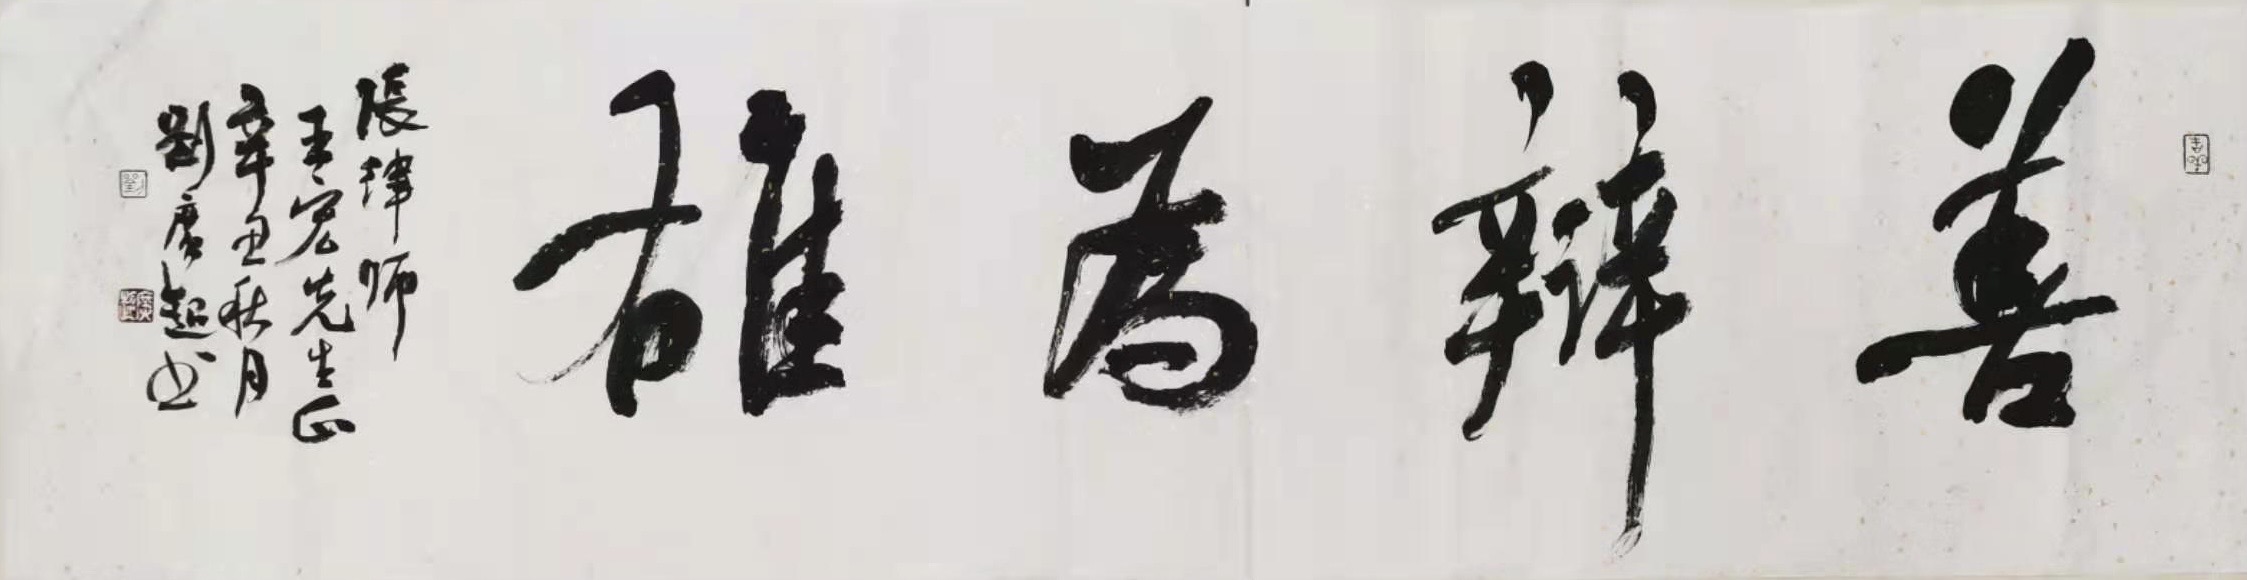 善辯為雄
張律師
王宏先生正
辛丑秋月
劉广超书